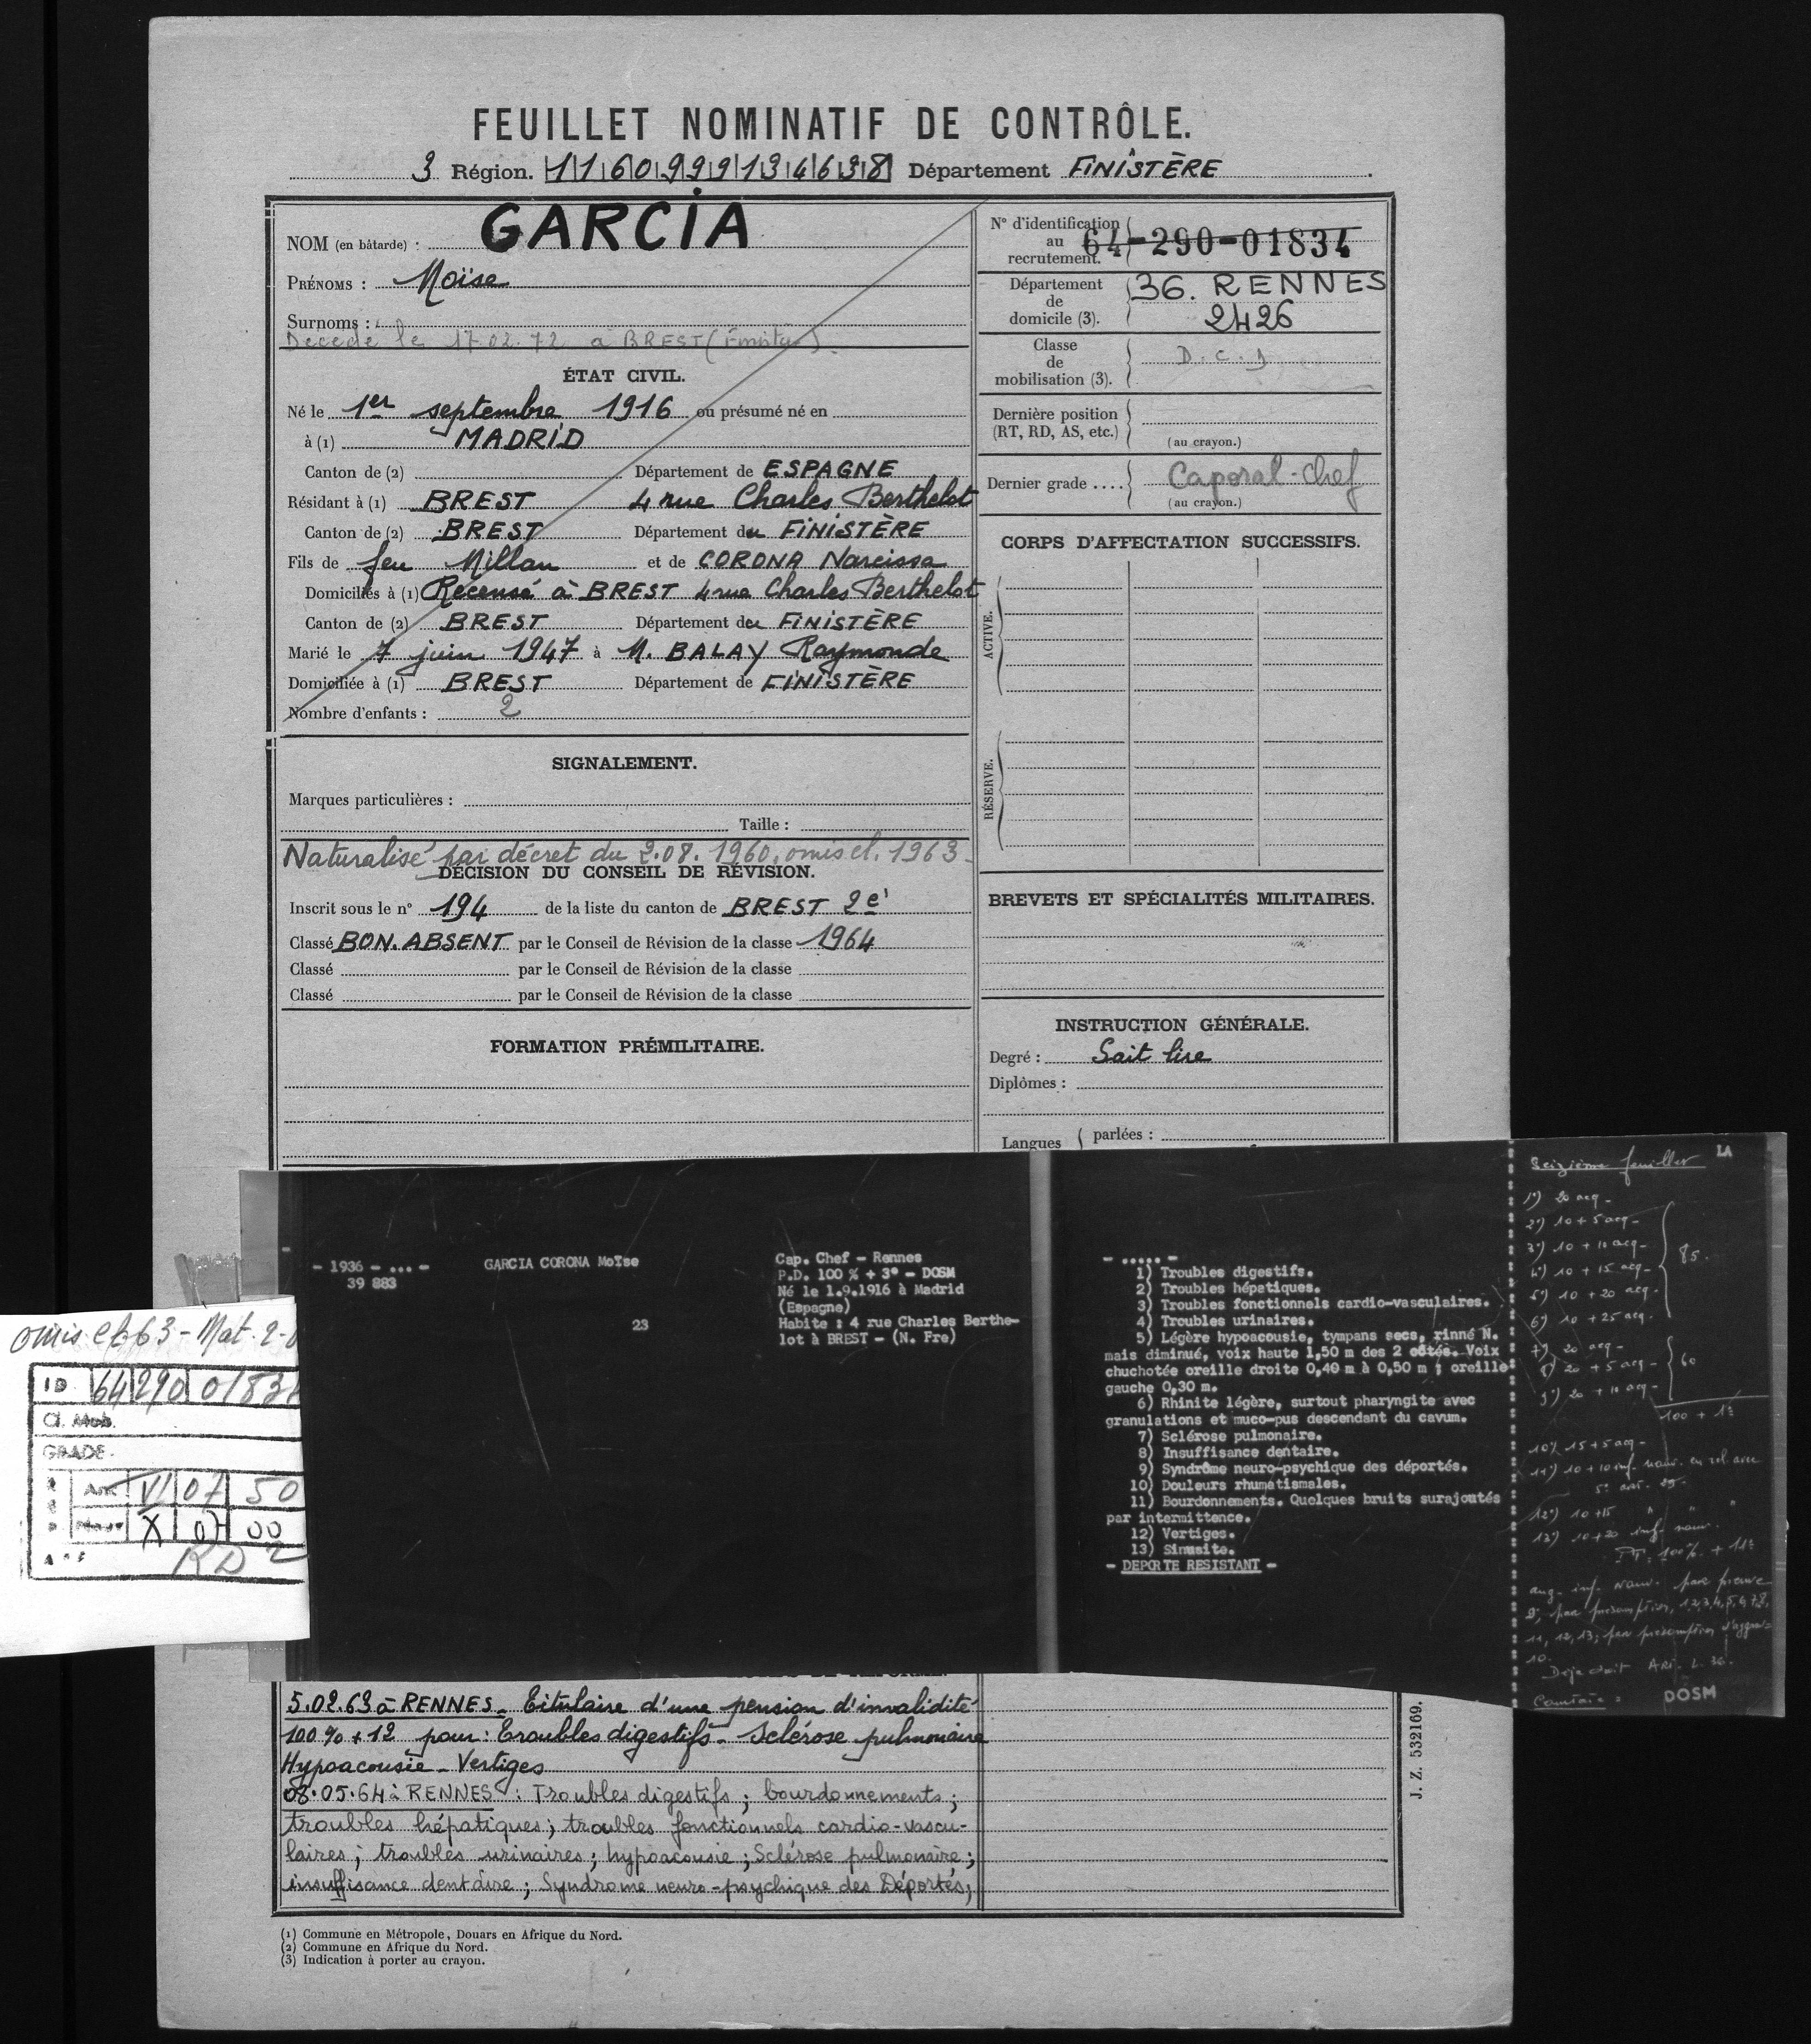 FEUILLET NOMINATIF DE CONTRÔLE.
3 Région. 1160999134638 Département FINISTÈRE.
NOM (en bâtarde) : GARCIA
PRÉNOMS : Moïse
Surnoms :
Décédé le 17.02.72 à BREST (Finistère).
ÉTAT CIVIL.
Né le 1er septembre 1916 ou présumé né en
à (1) MADRID
Canton de (2) Département de ESPAGNE
Résidant à (1) BREST 4 rue Charles Berthelot
Canton de (2) BREST Département du FINISTÈRE
Fils de feu Millan et de CORONA Narcissa
Domiciliés à (1) Recensé à BREST 4 rue Charles Berthelot
Canton de (2) BREST Département du FINISTÈRE
Marié le 7 juin 1947 à M. BALAY Raymonde
Domiciliée à (1) BREST Département de FINISTÈRE
Nombre d'enfants : 2
SIGNALEMENT.
Marques particulières :
Taille :
Naturalisé par décret du 2.08.1960, omis cl. 1963.
DÉCISION DU CONSEIL DE RÉVISION.
Inscrit sous le n° 194 de la liste du canton de BREST 2e
Classé BON. ABSENT par le Conseil de Révision de la classe 1964
Classé par le Conseil de Révision de la classe
Classé par le Conseil de Révision de la classe
FORMATION PRÉMILITAIRE.
N° d'identification
au
recrutement.
64-290-01834
Département
de
domicile (3).
36. RENNES
2426
Classe
de
mobilisation (3).
D.c.d
Dernière position
(RT, RD, AS, etc.)
(au crayon.)
Dernier grade .... Caporal-chef
(au crayon.)
CORPS D'AFFECTATION SUCCESSIFS.
ACTIVE.
RÉSERVE.
BREVETS ET SPÉCIALITÉS MILITAIRES.
INSTRUCTION GÉNÉRALE.
Degré : Sait lire
Diplômes :
Langues parlées :
omis cl 63 - Nat. 2-
ID 64 290 0183
Cl. Mob.
GRADE.
VI 07 50
X 07 00
RD 2
- 1936 - ... -
39 883
GARCIA CORONA Moïse
23
Cap. Chef - Rennes
P.D. 100 % + 3° - DOSM
Né le 1.9.1916 à Madrid
(Espagne)
Habite : 4 rue Charles Berthe-
lot à BREST - (N. Fre)
- ..... -
1) Troubles digestifs.
2) Troubles hépatiques.
3) Troubles fonctionnels cardio-vasculaires.
4) Troubles urinaires.
5) Légère hypoacousie, tympans secs, rinné N.
mais diminué, voix haute 1,50 m des 2 côtés. Voix
chuchotée oreille droite 0,40 m à 0,50 m ; oreille
gauche 0,30 m.
6) Rhinite légère, surtout pharyngite avec
granulations et muco-pus descendant du cavum.
7) Sclérose pulmonaire.
8) Insuffisance dentaire.
9) Syndrôme neuro-psychique des déportés.
10) Douleurs rhumatismales.
11) Bourdonnements. Quelques bruits surajoutés
par intermittence.
12) Vertiges.
13) Sinusite.
- DEPORTE RESISTANT -
LA
Seizième feuillet
1°) 20 acq -
2°) 10 + 5 acq -
3°) 10 + 10 acq -
4°) 10 + 15 acq -
5°) 10 + 20 acq -
6°) 10 + 25 acq -
85.
7°) 20 acq -
8°) 20 + 5 acq -
9°) 20 + 10 acq -
60
100 + 1°
10°) 15 + 5 acq -
11°) 10 + 10 inf. nouv. en rel. avec
12°) 10 + 15 " " "
13°) 10 + 20 inf. nouv.
PT: 100% + 11°
aug. inf. nouv. par preuve
9, par présomption, 1,2,3,4,5,6,7,8,
11, 12, 13; par présomption
10.
Déjà droit Art. L. 36.
DOSM
5.02.63 à RENNES. Titulaire d'une pension d'invalidité
100% + 12 pour : Troubles digestifs - Sclérose pulmonaire
Hypoacousie - Vertiges
08.05.64 à RENNES : Troubles digestifs ; bourdonnements ;
troubles hépatiques ; troubles fonctionnels cardio-vascu-
laires ; troubles urinaires ; hypoacousie ; Sclérose pulmonaire ;
insuffisance dentaire ; Syndrome neuro-psychique des Déportés ;
J. Z. 532169.
(1) Commune en Métropole, Douars en Afrique du Nord.
(2) Commune en Afrique du Nord.
(3) Indication à porter au crayon.